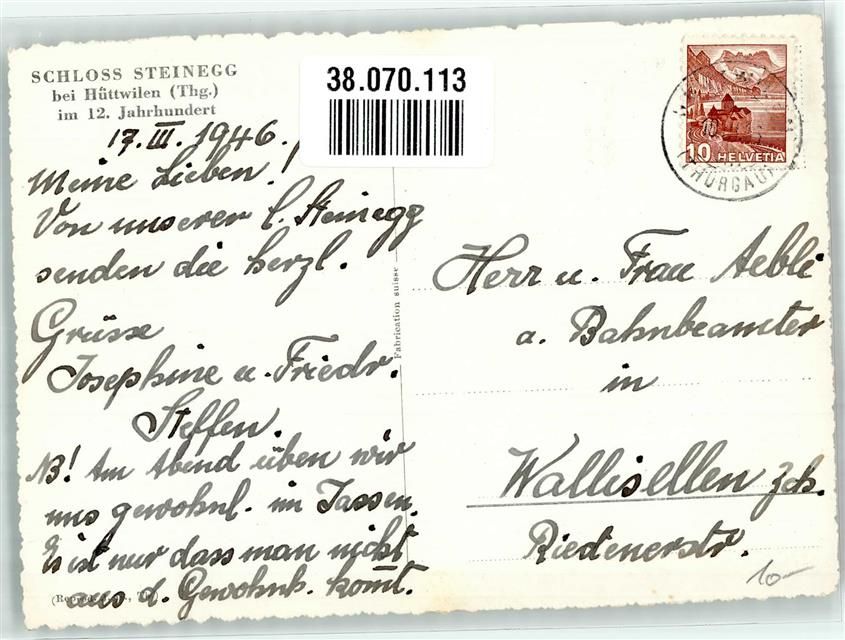 SCHLOSS STEINEGG
bei Hüttwilen (Thg.)
im 12. Jahrhundert
38.070.113
10 HELVETIA
(THURGAU)
17. III. 1946.
Meine Lieben!
Von unserer l. Steinegg
senden die herzl.
Grüsse
Josephine u. Friedr.
Steffen.
NB! Am Abend üben wir
uns gewohnl. im Jassen.
Es ist nur dass man nicht
aus d. Gewohnh. kommt.
Fabrication suisse
Herr u. Frau Aebli
a. Bahnbeamter
in
Wallisellen Zch.
Riedenerstr.
10-